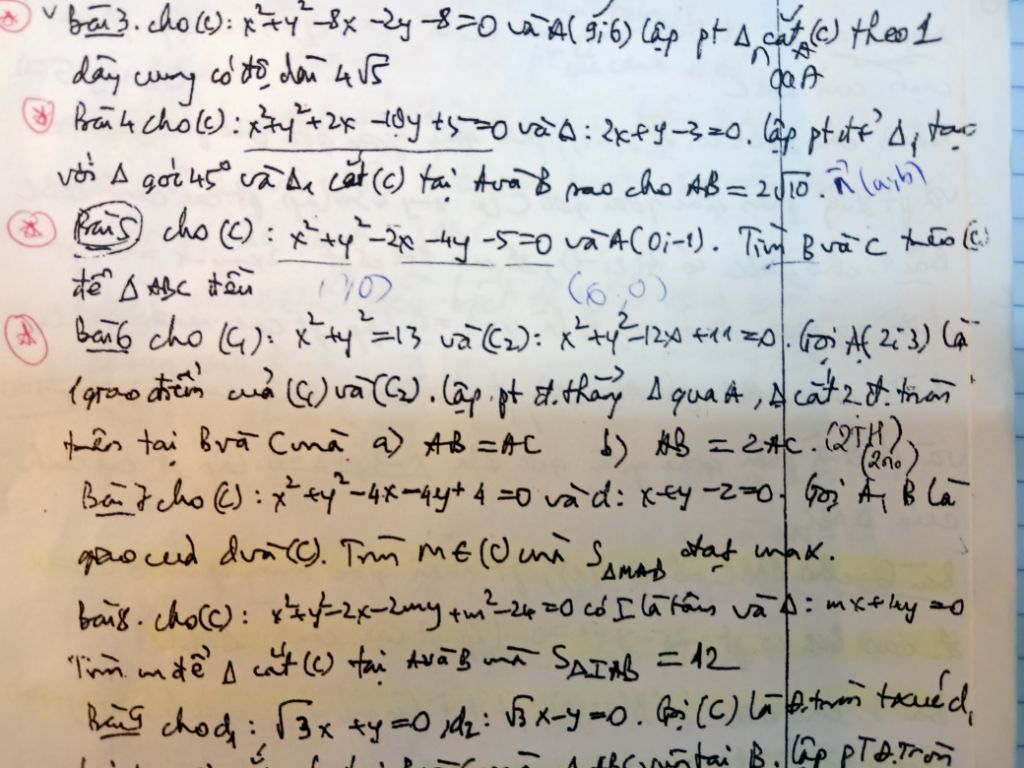 Bài 3. cho (C): x²+y²-8x-2y-8=0 và A(9;6) lập pt Δ cắt (C) theo 1
qa A
dây cung có độ dài 4√5
Bài 4 cho (C): x²+y²+2x-10y+5=0 và Δ: 2x+y-3=0. Lập pt đt Δ₁ tạo
với Δ góc 45° và Δ₁ cắt (C) tại A và B sao cho AB = 2√10. n⃗(a;b)
Bài 5 cho (C): x²+y²-2x-4y-5=0 và A(0;-1). Tìm B và C trên (C)
để Δ ABC đều
(6,0)
Bài 6 cho (C₁): x²+y²=13 và (C₂): x²+y²-12x+11=0. Gọi A(2;3) là
1 giao điểm của (C₁) và (C₂). Lập pt đ.thẳng Δ qua A, Δ cắt 2 đ.tròn
trên tại B và C mà a) AB = AC b) AB = 2AC. (2TH)
Bài 7 cho (C): x²+y²-4x-4y+4=0 và d: x+y-2=0. Gọi A, B là
giao của d và (C). Tìm M∈(C) mà S ΔMAB đạt max.
Bài 8. cho (C): x²+y²-2x-2my+m²-24=0 có I là tâm và Δ: mx+4y=0
Tìm m để Δ cắt (C) tại A và B mà S ΔIAB = 12
Bài 9 cho d₁: √3x+y=0, d₂: √3x-y=0. Gọi (C) là đ.tròn t.xúc d₁
tại B. lập PT Đ.Tròn